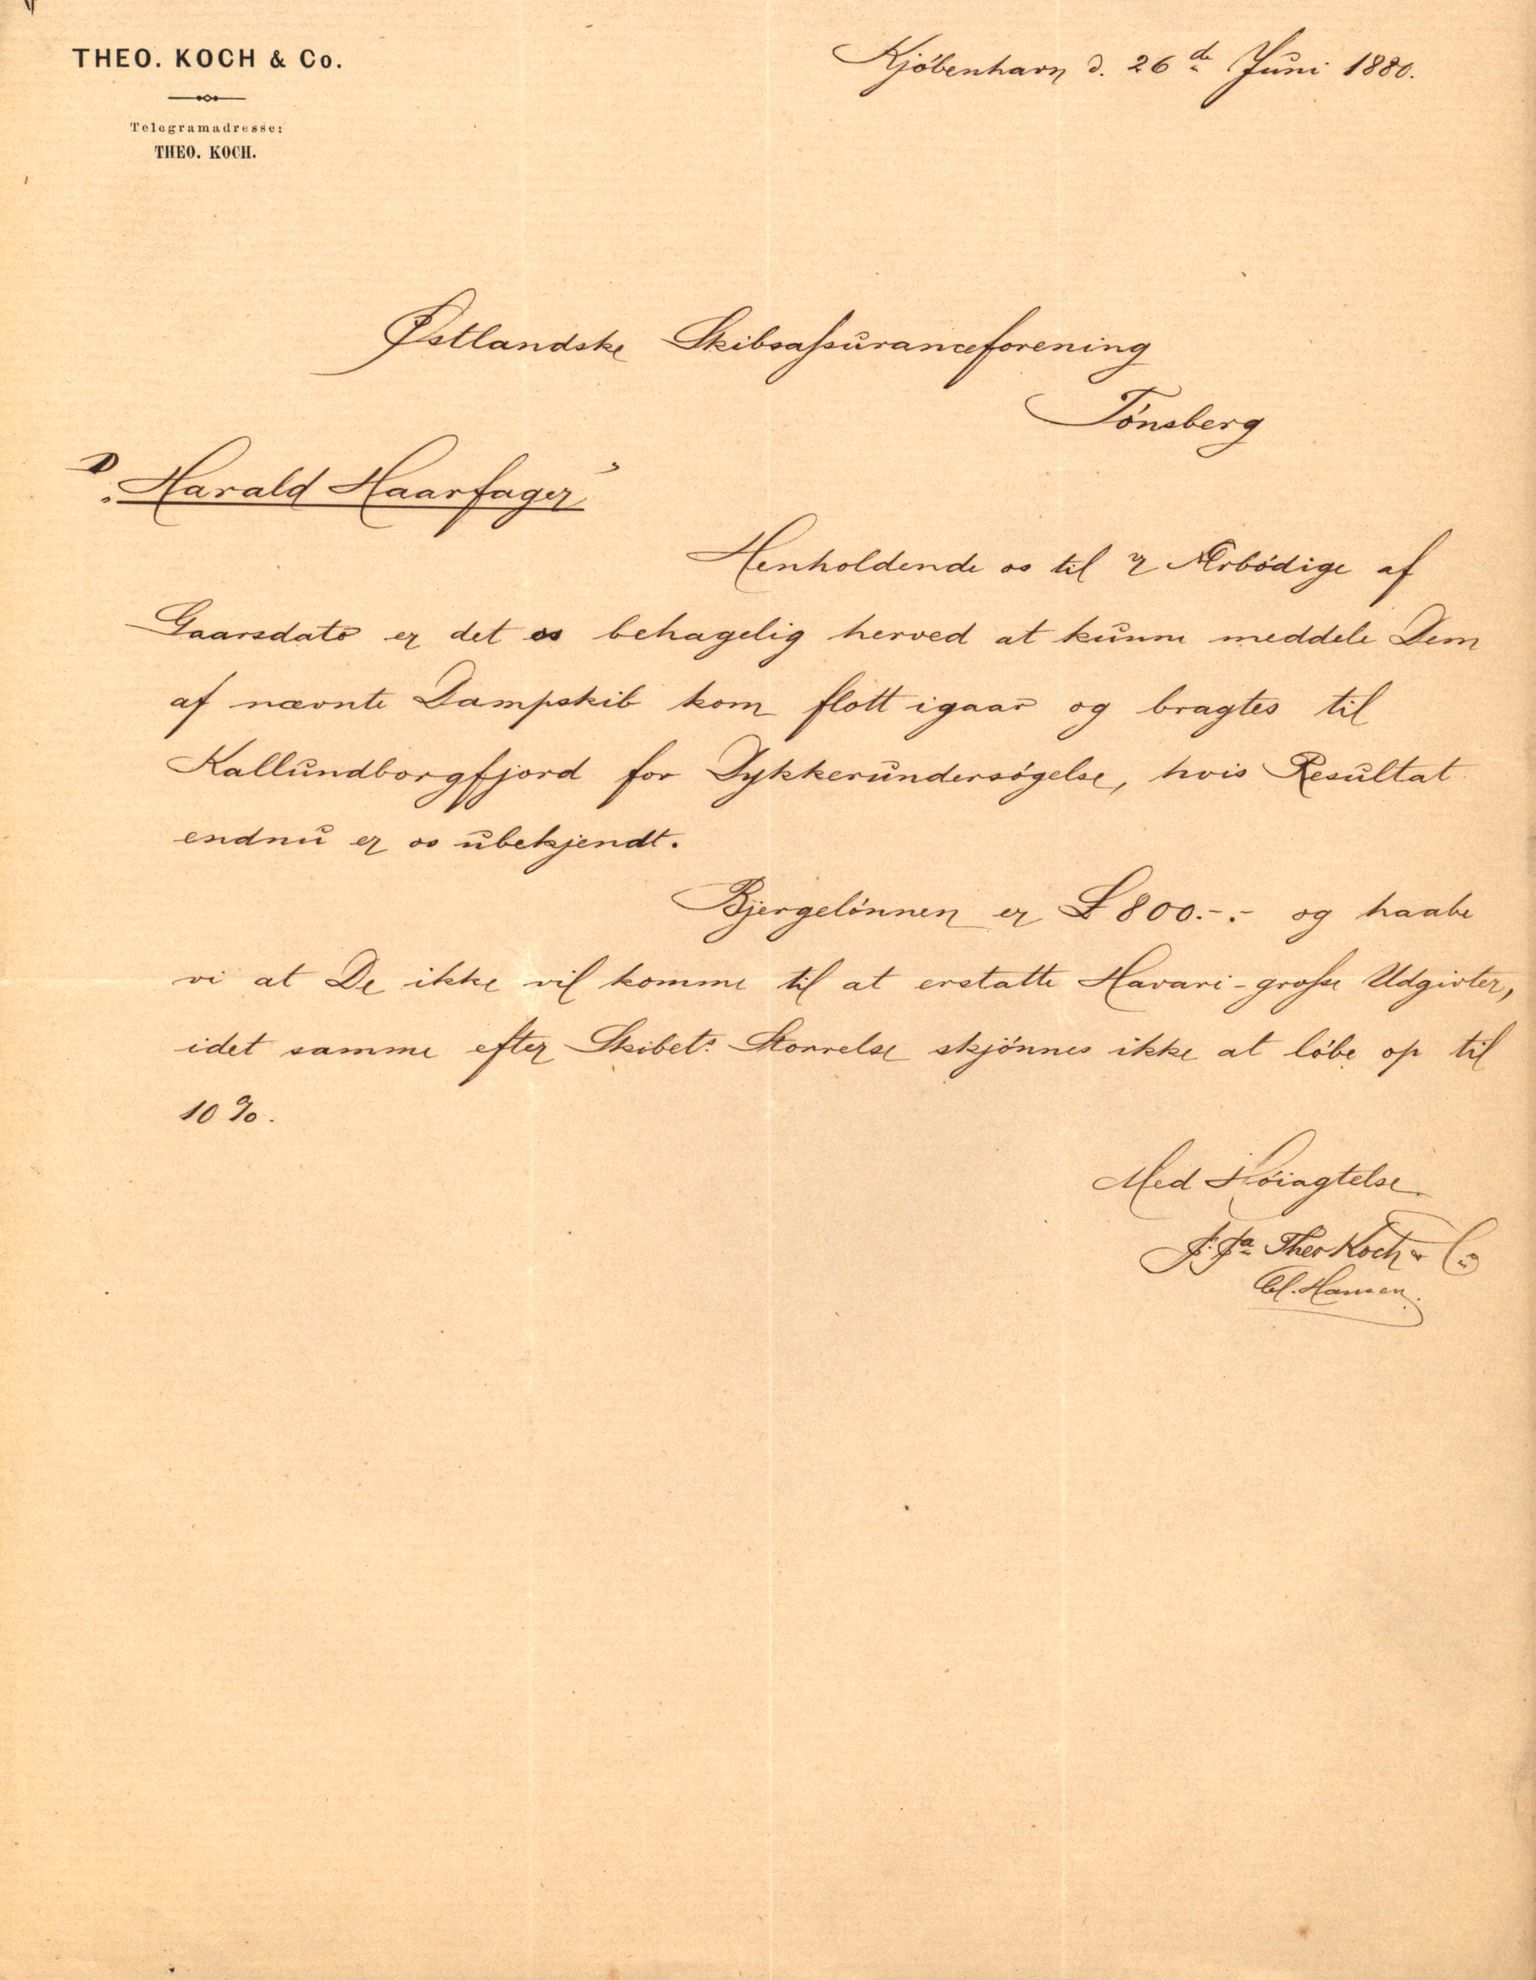 THEO. KOCH & Co.
Telegramadresse:
THEO. KOCH.
Kjöbenhavn d. 26de Juni 1880.
Østlandske Skibsassuranceforening
Tönsberg
D "Harald Haarfager"
Henholdende os til Ærbödige af
Gaarsdato er det os behagelig herved at kunne meddele Dem
af nævnte Dampskib kom flott igaar og bragtes til
Kallundborgfjord for Dykkerundersögelse, hvis Resultat
endnu er os ubekjendt.
Bjergelönnen er £ 800.-.- og haabe
vi at De ikke vil komme til at erstatte Havari-grosse Udgivter,
idet samme efter Skibets Storrelse skjönnes ikke at löbe op til
10%.
Med Höiagtelse
Theo Koch & Co
Hansen.